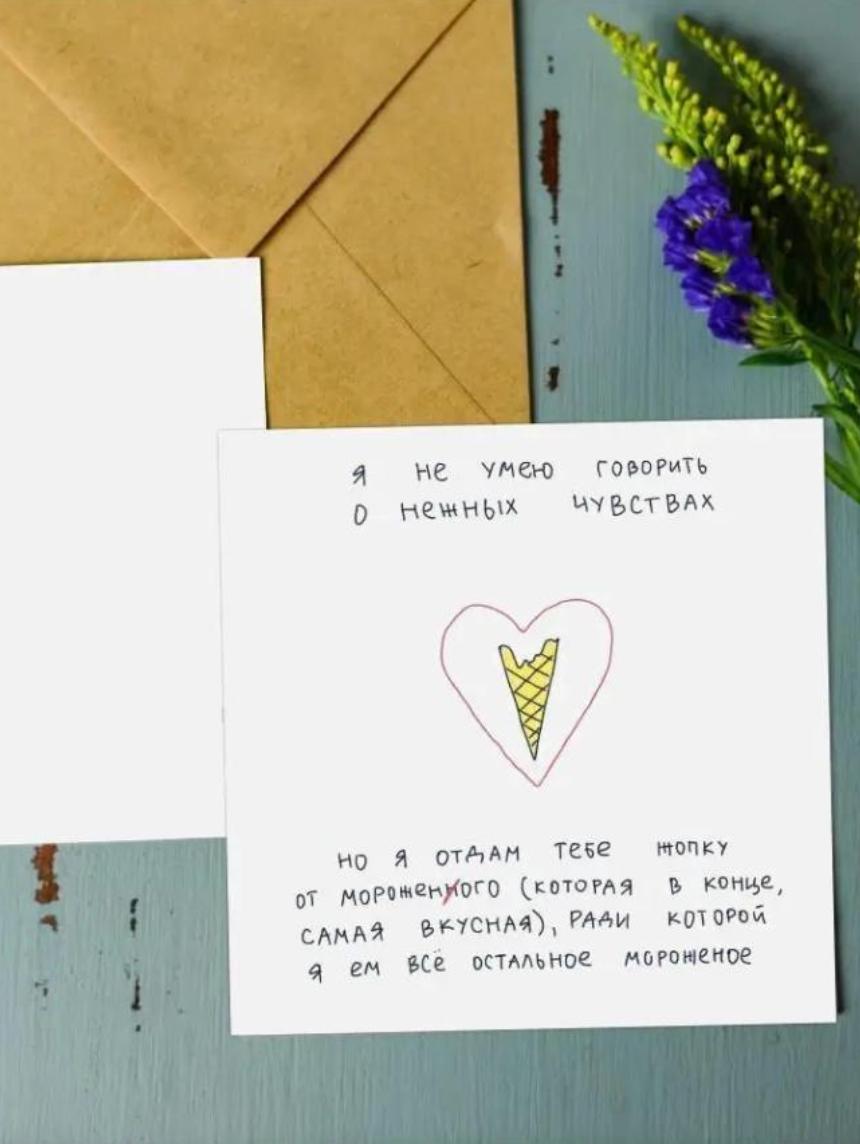 я не умею говорить
о нежных чувствах
но я отдам тебе жопку
от мороженного (которая в конце,
самая вкусная), ради которой
я ем всё остальное мороженое